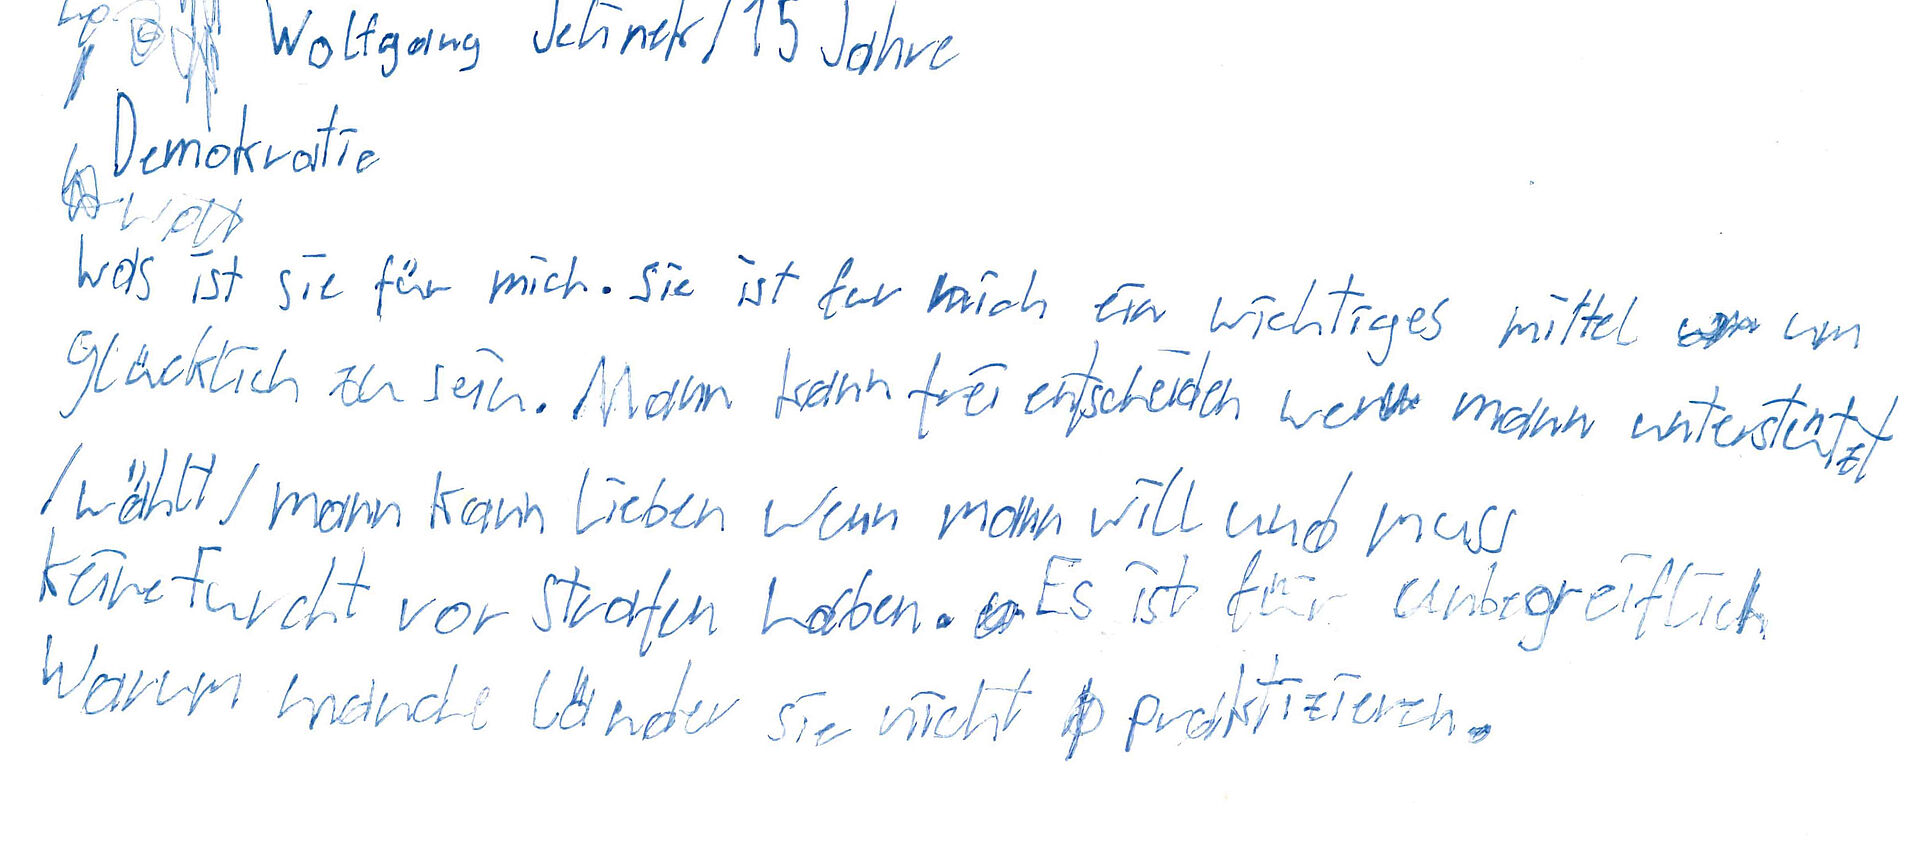 Wolfgang Jelinek / 15 Jahre
Demokratie
Was ist sie für mich. Sie ist fur mich ein wichtiges mittel um
Glücklich zu sein. Mann kann frei entscheiden wenn mann unterstentzt
/wählt/ mann kann Lieben wenn mann will und muss
keine Furcht vor Strafen haben. Es ist für unbegreiflich
Warum manche Länder sie nicht praktizieren.